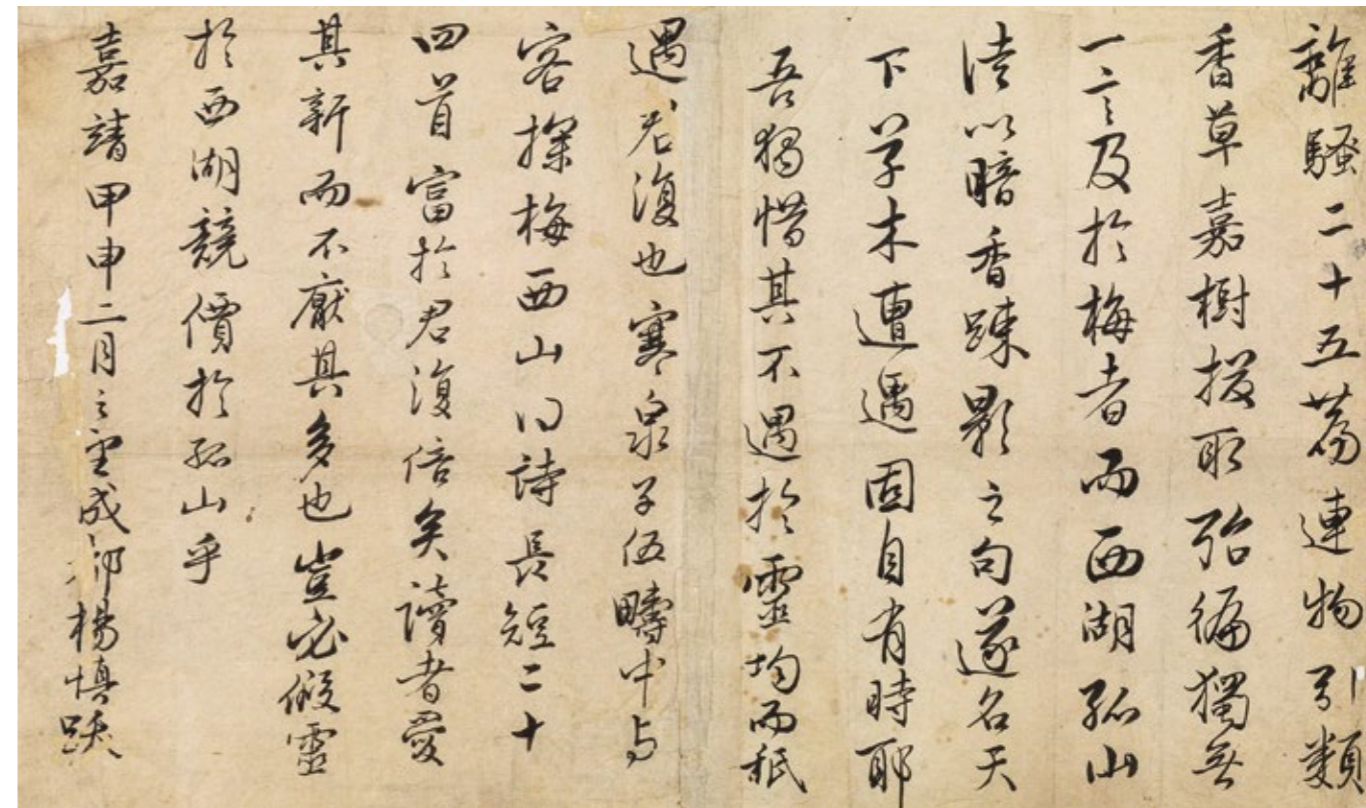 離騷二十五萹連物引類
香草嘉樹掇取殆徧獨無
一言及於梅者而西湖孤山
徒以暗香踈影之句遂名天
下草木遭遇固自有時耶
吾獨惜其不遇於靈均而秖
遇君復也寒泉子伍疇中与
客探梅西山得詩長短二十
四首富於君復倍矣讀者愛
其新而不厭其多也豈必假靈
於西湖競價於孤山乎
嘉靖甲申二月之望成都楊慎跋